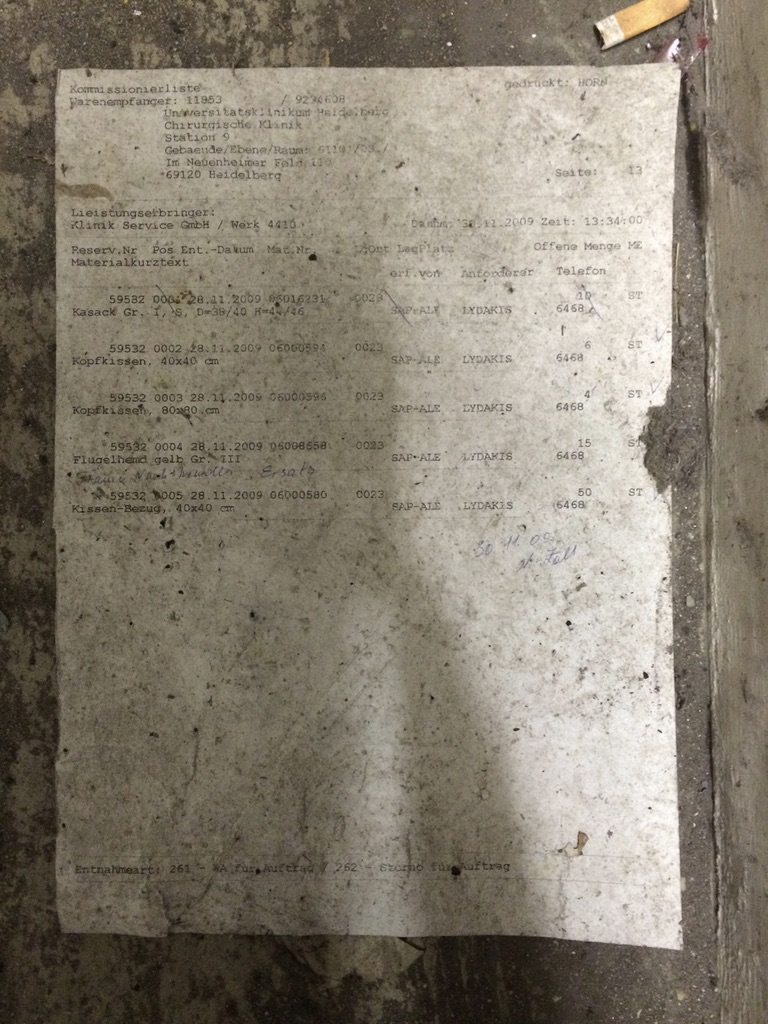 Kommissionierliste gedruckt: HORN
Warenempfänger: 11853 /
Universitätsklinikum Heidelberg
Chirurgische Klinik
Station 9
Gebaeude/Ebene/Raum:
Im Neuenheimer Feld 110
69120 Heidelberg Seite: 13
Lieistungserbringer:
Klinik Service GmbH / Werk 4410 Datum: 30.11.2009 Zeit: 13:34:00
Reserv.Nr Pos Ent.-Datum Mat.Nr. LOrt Lagplatz Offene Menge ME
Materialkurztext
erf.von Anforderer Telefon
59532 0001 28.11.2009 06016231 0023 10 ST
Kasack Gr. I, S, D=38/40 H=44/46 SAP-ALE LYDAKIS 6468
59532 0002 28.11.2009 06000594 0023 6 ST
Kopfkissen, 40x40 cm SAP-ALE LYDAKIS 6468
59532 0003 28.11.2009 06000596 0023 4 ST
Kopfkissen, 80x80 cm SAP-ALE LYDAKIS 6468
59532 0004 28.11.2009 06008658 0023 15 ST
Flügelhemd gelb Gr. III SAP-ALE LYDAKIS 6468
Ersatz
59532 0005 28.11.2009 06000580 0023 50 ST
Kissen-Bezug, 40x40 cm SAP-ALE LYDAKIS 6468
30 11 09
Entnahmeart: 261 - WA für Auftrag / 262 - Storno für Auftrag